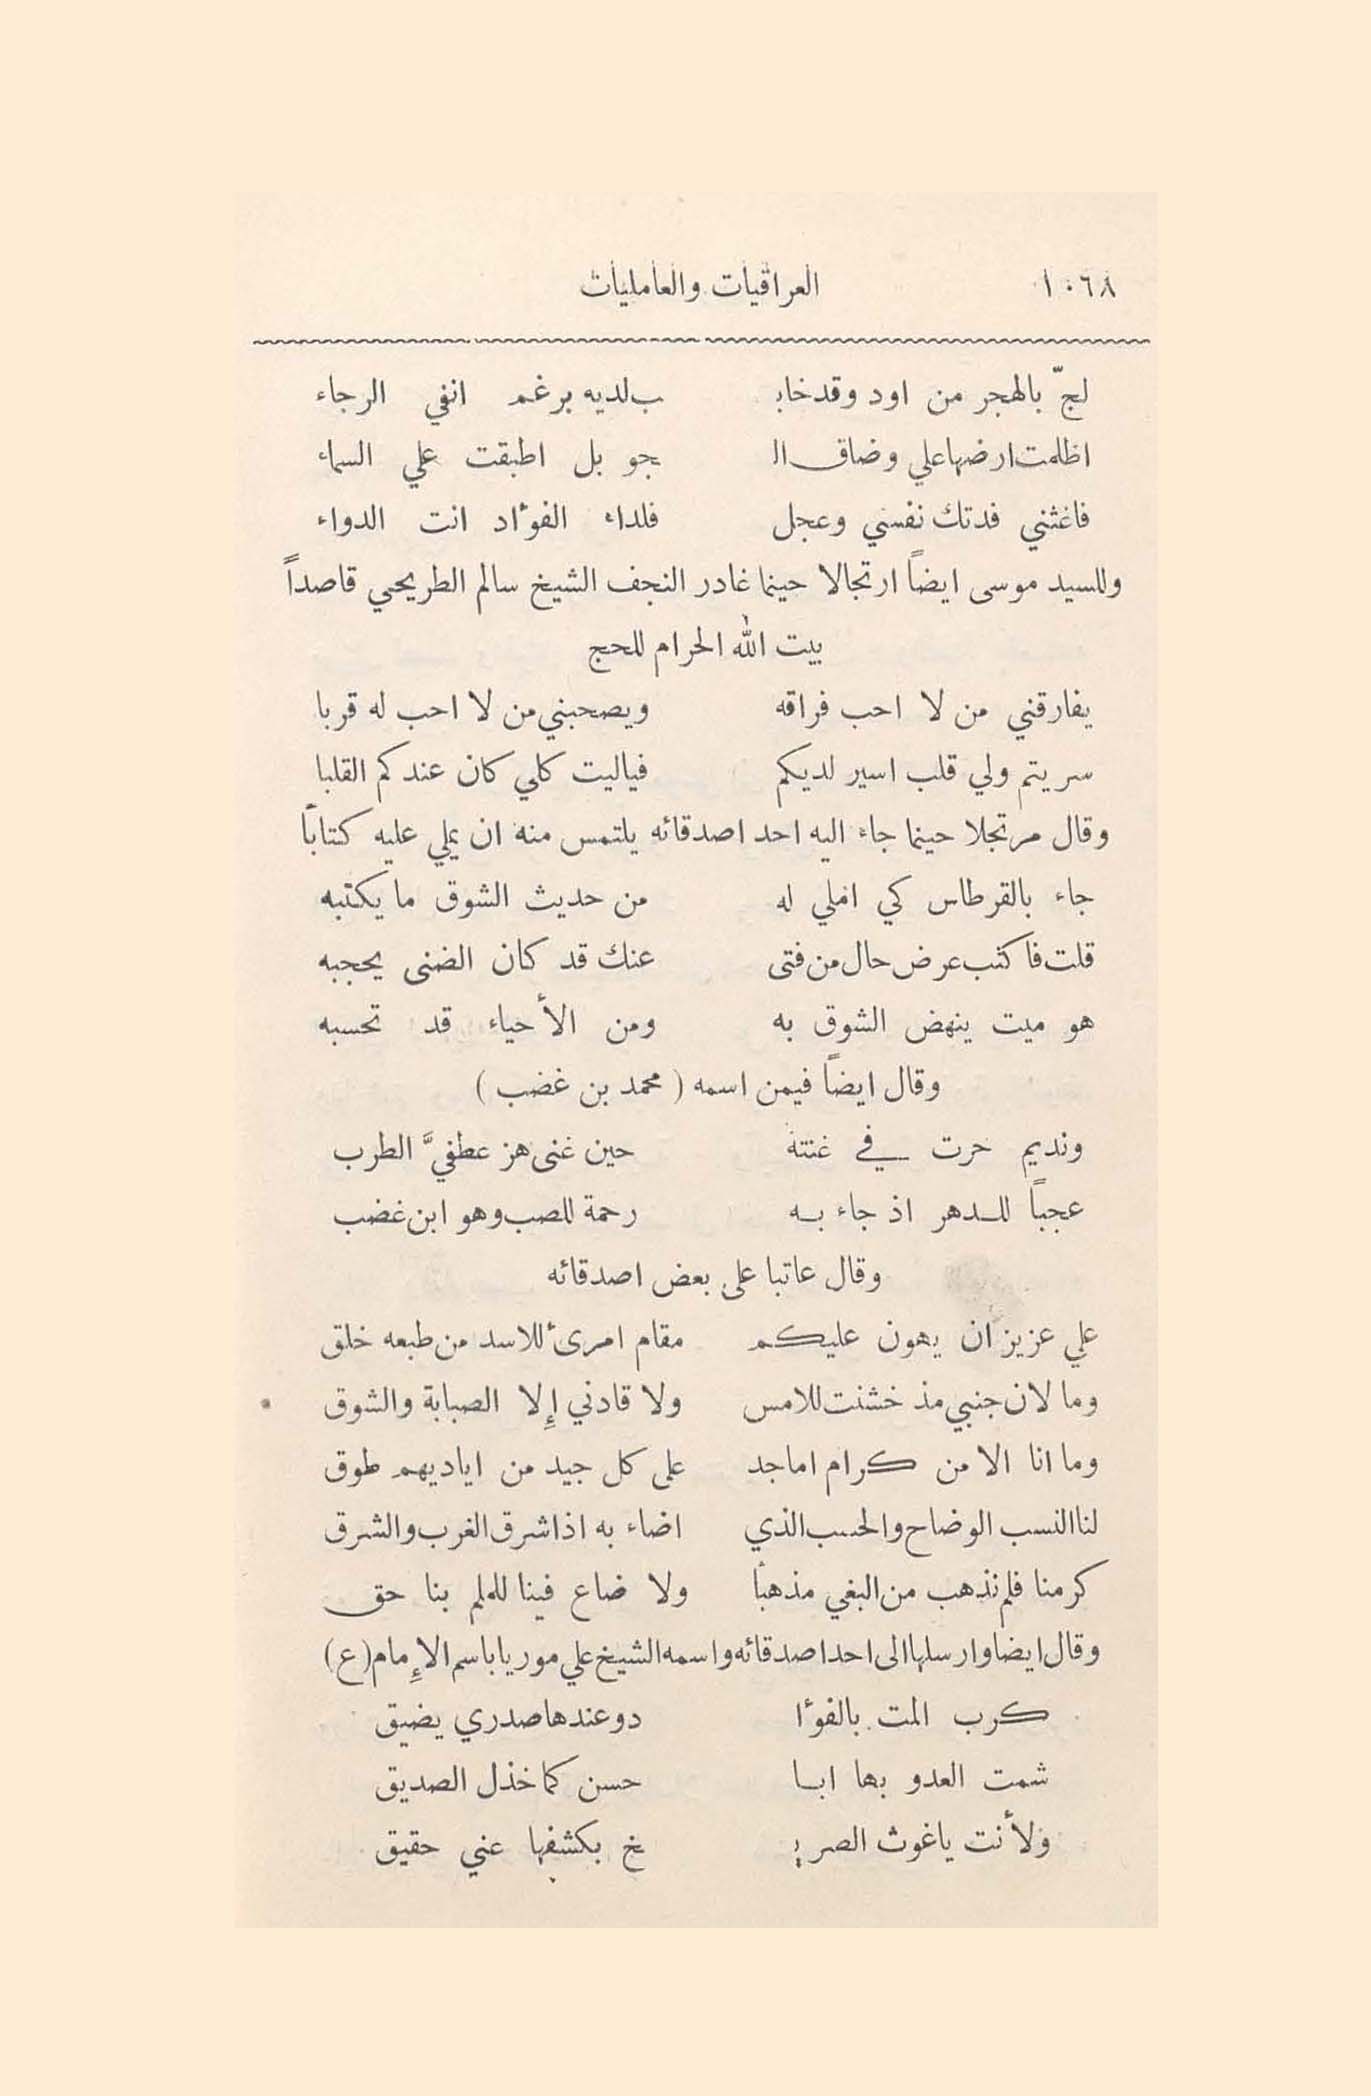 ١٠٦٨ العراقيات والعامليات
لجّ بالهجر من اود وقدخاب ب لديه برغم انفي الرجاء
اظلمت ارضها علي وضاق ال جو بل اطبقت علي السماء
فاغثني فدتك نفسي وعجل فلداء الفوءاد انت الدواء
وللسيد موسى ايضاً ارتجالا حينما غادر النجف الشيخ سالم الطريحي قاصداً
بيت الله الحرام للحج
يفارقني من لا احب فراقه ويصحبني من لا احب له قربا
سريتم ولي قلب اسير لديكم فياليت كلي كان عندكم القلبا
وقال مرتجلا حينما جاء اليه احد اصدقائه يلتمس منه ان يملي عليه كتاباً
جاء بالقرطاس كي املي له من حديث الشوق ما يكتبه
قلت فاكتب عرض حال من فتى عنك قد كان الضنى يحجبه
هو ميت ينهض الشوق به ومن الأحياء قد تحسبه
وقال ايضاً فيمن اسمه ( محمد بن غضب )
ونديم حرت في غنته حين غنى هز عطفيَّ الطرب
عجباً للدهر اذ جاء به رحمة للصب وهو ابن غضب
وقال عاتبا على بعض اصدقائه
علي عزيز ان يهون عليكم مقام امرئ للاسد من طبعه خلق
وما لان جنبي مذ خشنت للامس ولا قادني إلا الصبابة والشوق
وما انا الا من كرام اماجد على كل جيد من اياديهم طوق
لنا النسب الوضاح والحسب الذي اضاء به اذ اشرق الغرب والشرق
كرمنا فلم نذهب من البغي مذهباً ولا ضاع فينا للملم بنا حق
وقال ايضا وارسلها الى احد اصدقائه واسمه الشيخ علي موريا باسم الإمام (ع)
كرب المت بالفوءا د وعندها صدري يضيق
شمت العدو بها ابا حسن كما خذل الصديق
ولأنت ياغوث الصري خ بكشفها عني حقيق